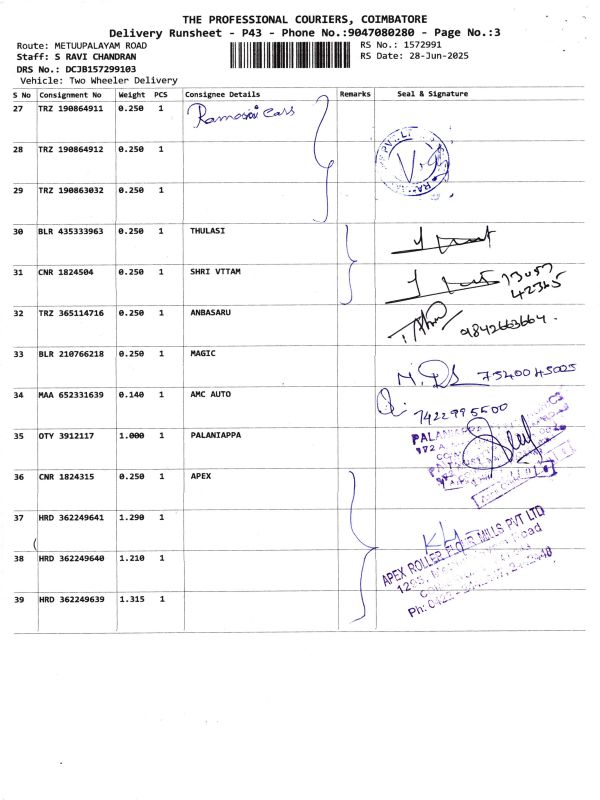 THE PROFESSIONAL COURIERS, COIMBATORE
Delivery Runsheet - P43 - Phone No.:9047080280 - Page No.:3
Route: METUUPALAYAM ROAD
RS No.: 1572991
Staff: S RAVI CHANDRAN
RS Date: 28-Jun-2025
DRS No.: DCJB157299103
Vehicle: Two Wheeler Delivery
S No Consignment No Weight PCS Consignee Details Remarks Seal & Signature
27 TRZ 190864911 0.250 1 Ramani Cars
28 TRZ 190864912 0.250 1
29 TRZ 190863032 0.250 1
30 BLR 435333963 0.250 1 THULASI
31 CNR 1824504 0.250 1 SHRI VTTAM
42365
32 TRZ 365114716 0.250 1 ANBASARU 9842663664.
33 BLR 210766218 0.250 1 MAGIC 75400 45005
34 MAA 652331639 0.140 1 AMC AUTO 7422995500
35 OTY 3912117 1.000 1 PALANIAPPA
36 CNR 1824315 0.250 1 APEX
37 HRD 362249641 1.290 1
APEX ROLLER FLOUR MILLS PVT LTD
38 HRD 362249640 1.210 1
39 HRD 362249639 1.315 1